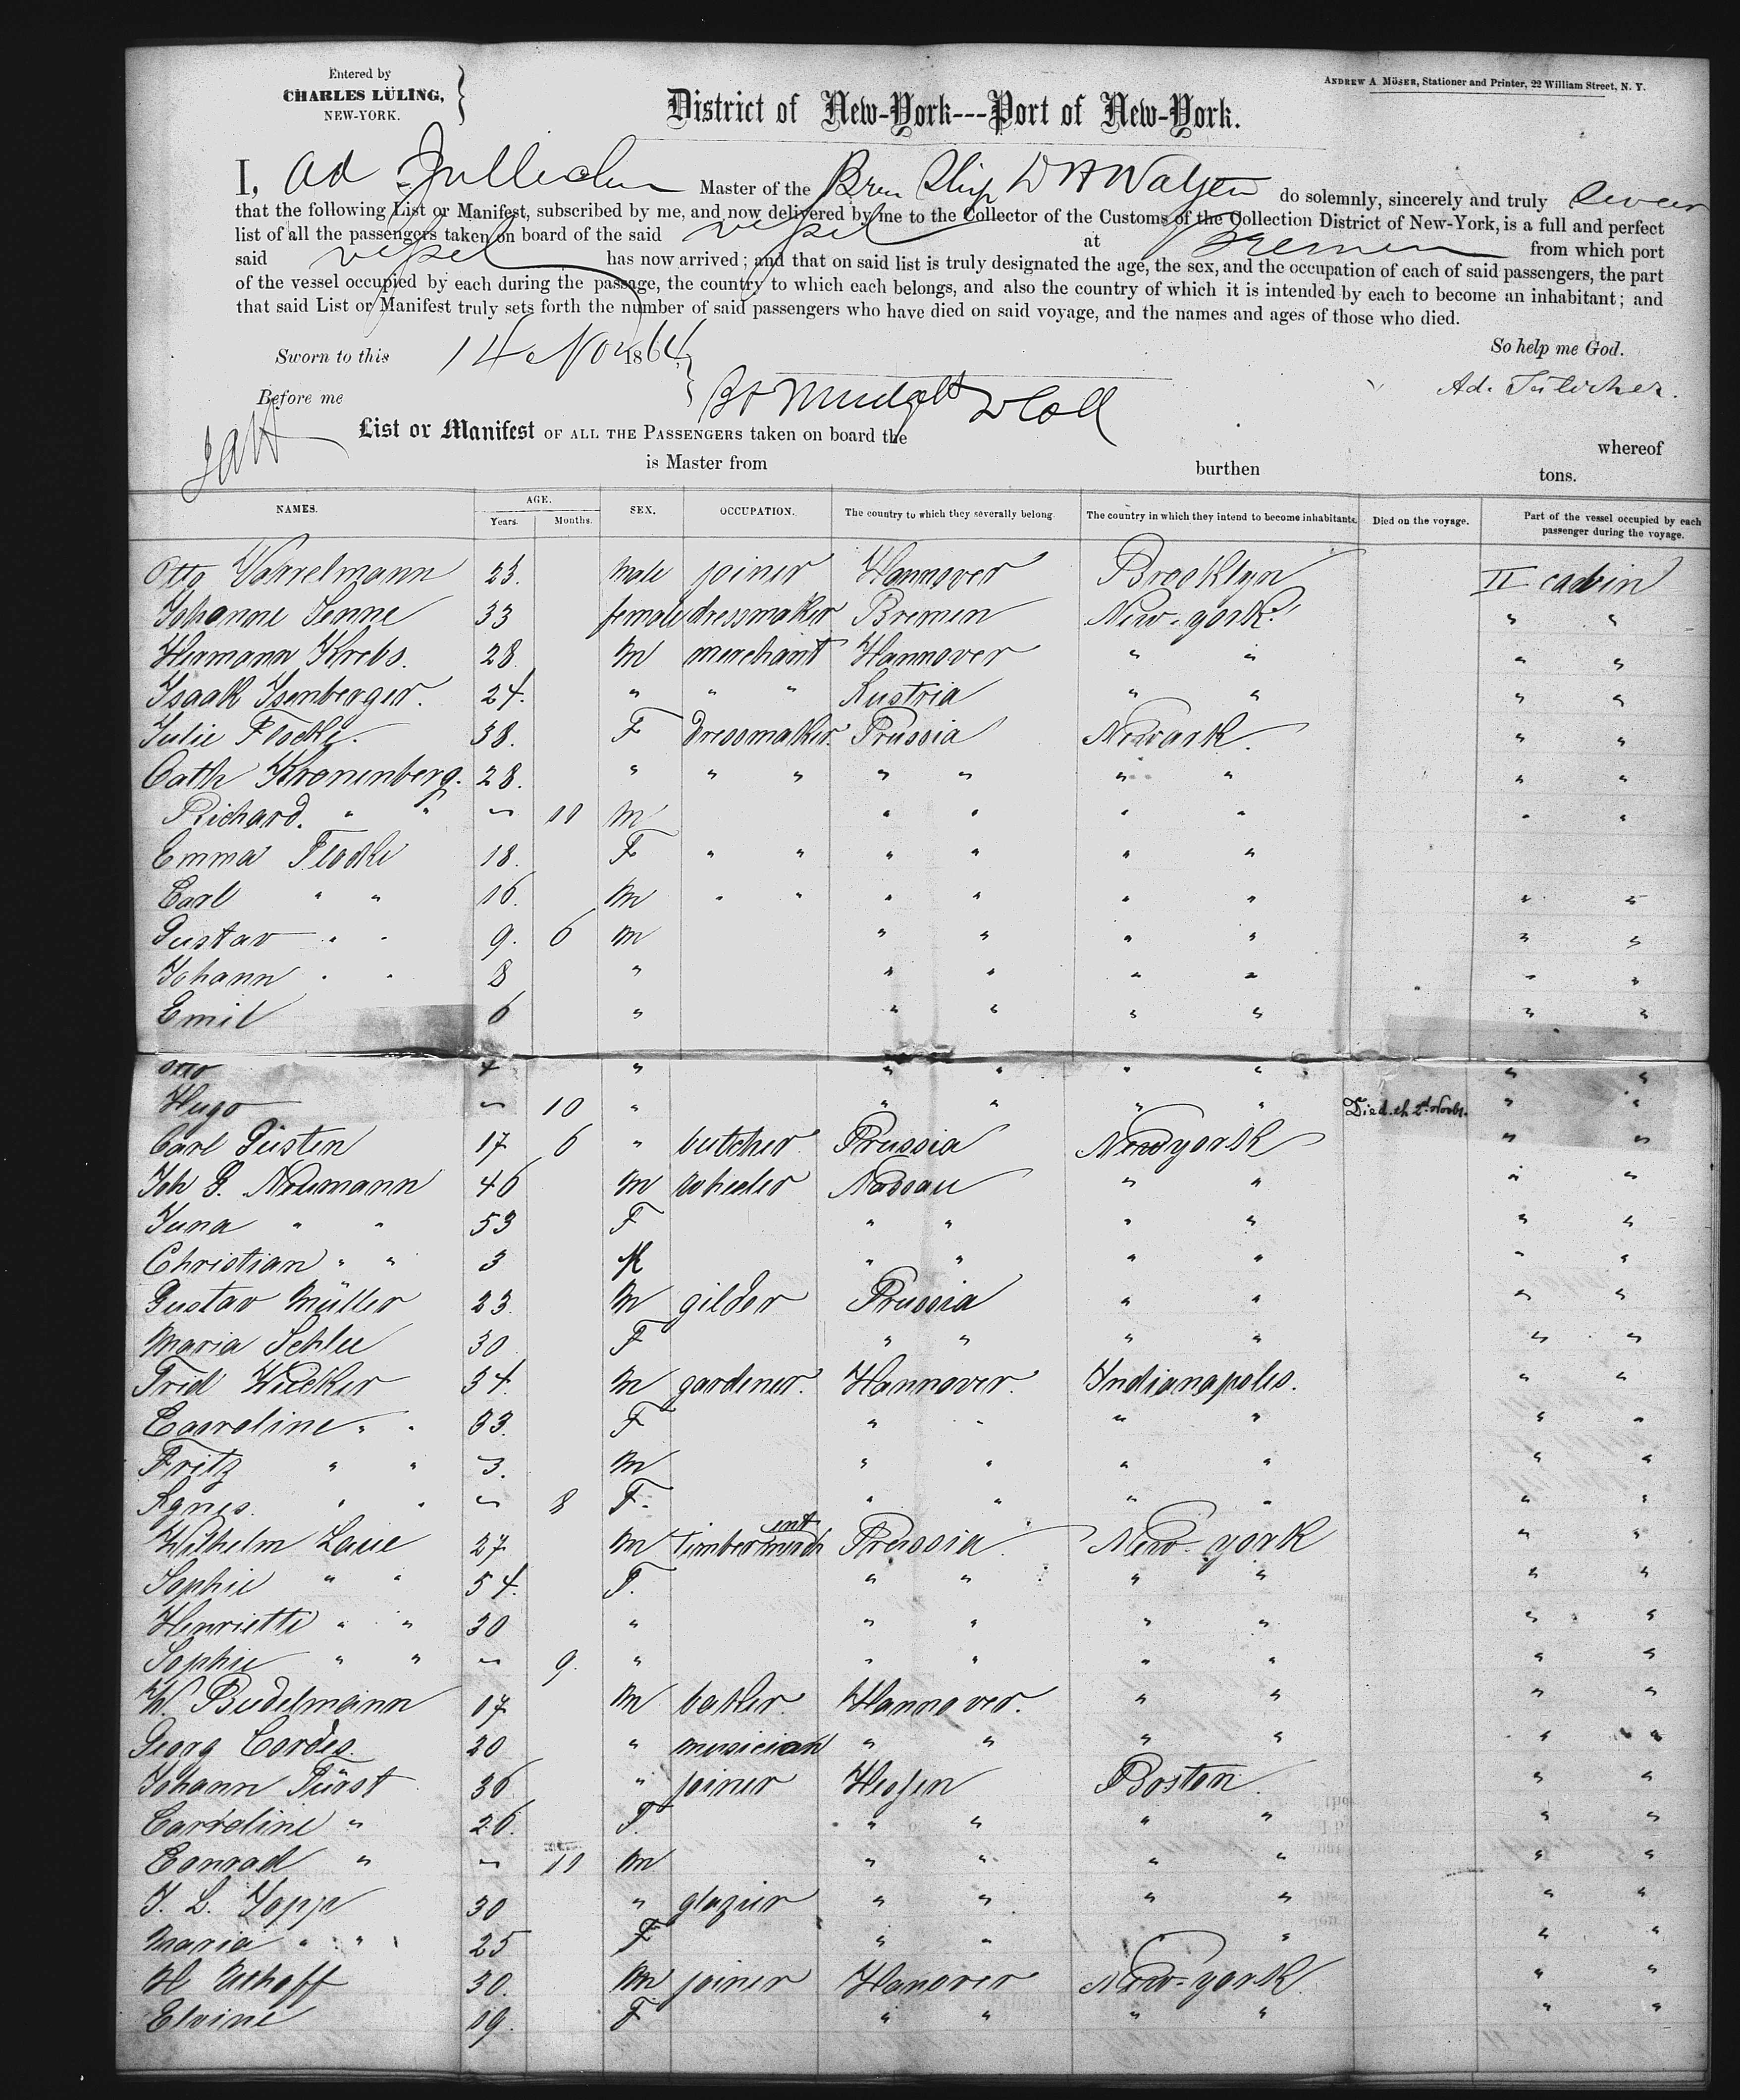 Entered by
CHARLES LÜLING,
NEW-YORK.
ANDREW A MÖSER, Stationer and Printer, 22 William Street, N. Y.
District of New-York---Port of New-York.
I, Ad Master of the Brem Ship D H Watjen do solemnly, sincerely and truly swear
that the following List or Manifest, subscribed by me, and now delivered by me to the Collector of the Customs of the Collection District of New-York, is a full and perfect
list of all the passengers taken on board of the said vessel at Bremen from which port
said vessel has now arrived; and that on said list is truly designated the age, the sex, and the occupation of each of said passengers, the part
of the vessel occupied by each during the passage, the country to which each belongs, and also the country of which it is intended by each to become an inhabitant; and
that said List or Manifest truly sets forth the number of said passengers who have died on said voyage, and the names and ages of those who died.
Sworn to this 14 Nov 1864 So help me God.
Before me Ad.
List or Manifest OF ALL THE PASSENGERS taken on board the whereof
is Master from burthen tons.
NAMES. AGE. Years. Months. SEX. OCCUPATION. The country to which they severally belong. The country in which they intend to become inhabitants. Died on the voyage. Part of the vessel occupied by each passenger during the voyage.
Otto Varrelmann 23. Male joiner Hannover Brooklyn II cabin
Johanne Senne 33 female dressmaker Bremen New-york " "
Hermann Krebs. 28 M merchant Hannover " " " "
Isaak Isenberger. 24. " " " Austria " " " "
Julie Flocke. 38. F Dressmaker. Prussia Newark. " "
Cath Kronenberg. 28. " " " " " " " " "
Richard. " " ~ 11 M " " " " " "
Emma Flocke 18. F " " " " " "
Carl " " 16. M " " " " " " " "
Gustav " " 9. 6 M " " " " " "
Johann " " 8 " " " " " " "
Emil 6 " " " " " " "
Otto 4 " " " " " " "
Hugo ~ 10 " " " " " Died " "
Carl Güsten 17 6 " butcher Prussia New york " "
Joh G. Neumann 46 M wheeler Nassau " " " "
Juna " " 53 F " " " " " "
Christian " " 3 M " " " " " "
Gustav Müller 23. M gilder Prussia " " " "
Maria Schlee 30 F " " " " " "
Fried Wilcker 34. M gardener. Hannover. Indianapoles. " "
Caroline " " 33. F " " " " " "
Fritz " " 3. M " " " " " "
Agnes. " " ~ 8 F. " " " " " "
Wilhelm Laue 27 M Timbermerchent Preussia. New-york " "
Sophie " " 54. F. " " " " " "
Henriette " " 30 " " " " " " "
Sophie " " ~ 9. " " " " " " "
W. Budelmann 17 M baker. Hannover. " " " "
Georg Cordes. 20 " musician " " " " " "
Johann Fürst 36 " joiner Hessen Boston. " "
Carroline " 26. F. " " " " " "
Conrad " ~ 11 M " " " " " "
J. L. Jopp 30 " glazier " " " " " "
Maria " " 25 F " " " " "
H Uthoff 30. M joiner Hanover New-york. " "
Elvine 19. F " " " " " "